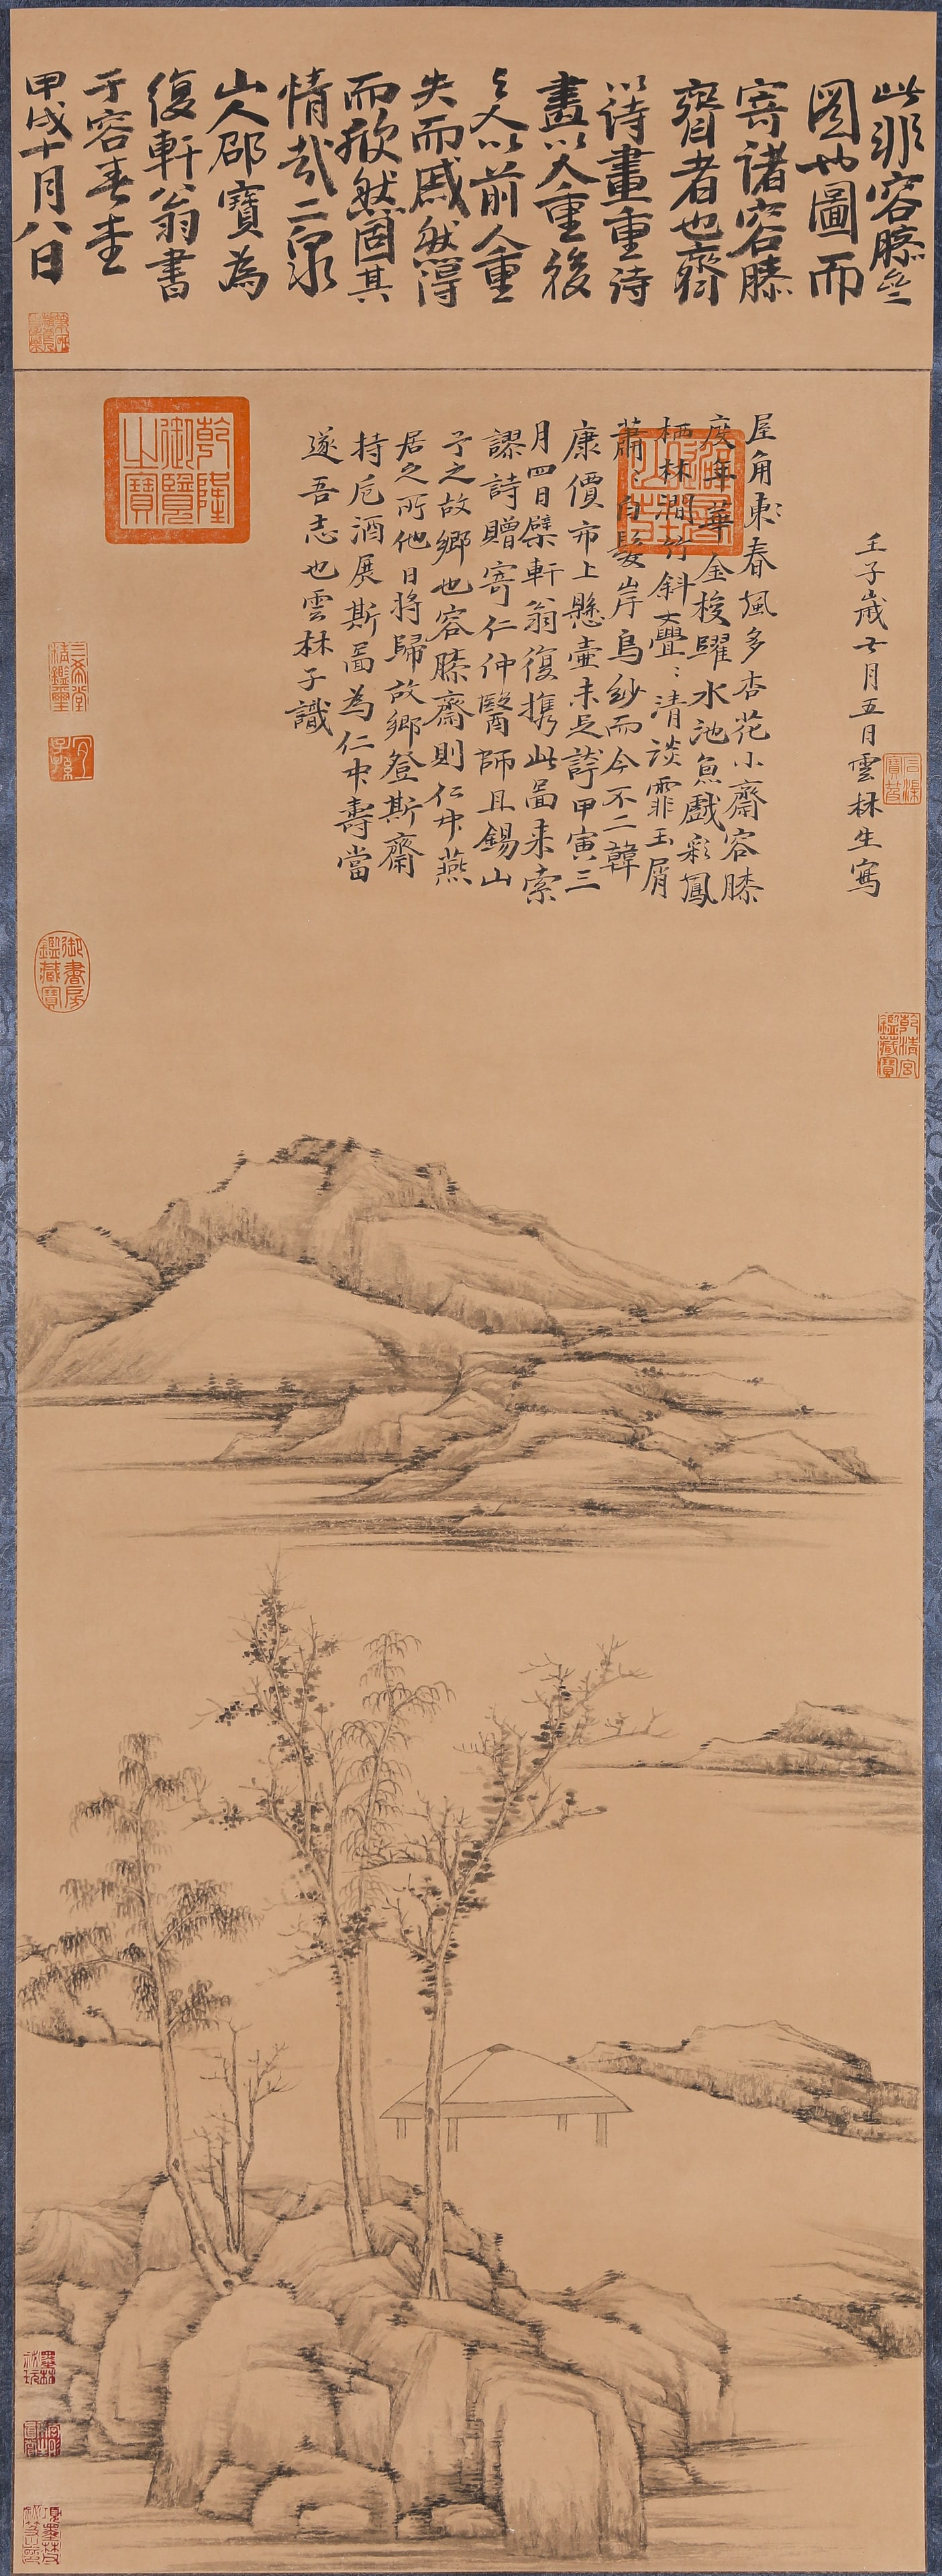 此非容膝齋
圖也圖而
寄諸容膝
齋者也齋
以詩畫重詩
畫以人重後
之人以前人重
失而戚然得
而欣然固其
情哉二泉
山人邵寶為
復軒公翁書
于容春堂
甲戌十月八日
壬子歲七月五日雲林生寫
屋角東春風多杏花小齋容膝
度年華金梭躍水池魚戲彩鳳
栖林澗竹斜亹〻清談霏玉屑
蕭〻白髮岸烏紗而今不二韓
康價市上懸壺未足誇甲寅三
月四日檗軒翁復攜此圖來索
謬詩贈寄仁仲醫師且錫山
予之故鄉也容膝齋則仁仲燕
居之所他日將歸故鄉登斯齋
持巵酒展斯圖為仁仲壽當
遂吾志也雲林子識
乾隆御覽之寶
三希堂精鑑璽
宜子孫
御書房鑑藏寶
石渠寶笈
乾清宮鑑藏寶